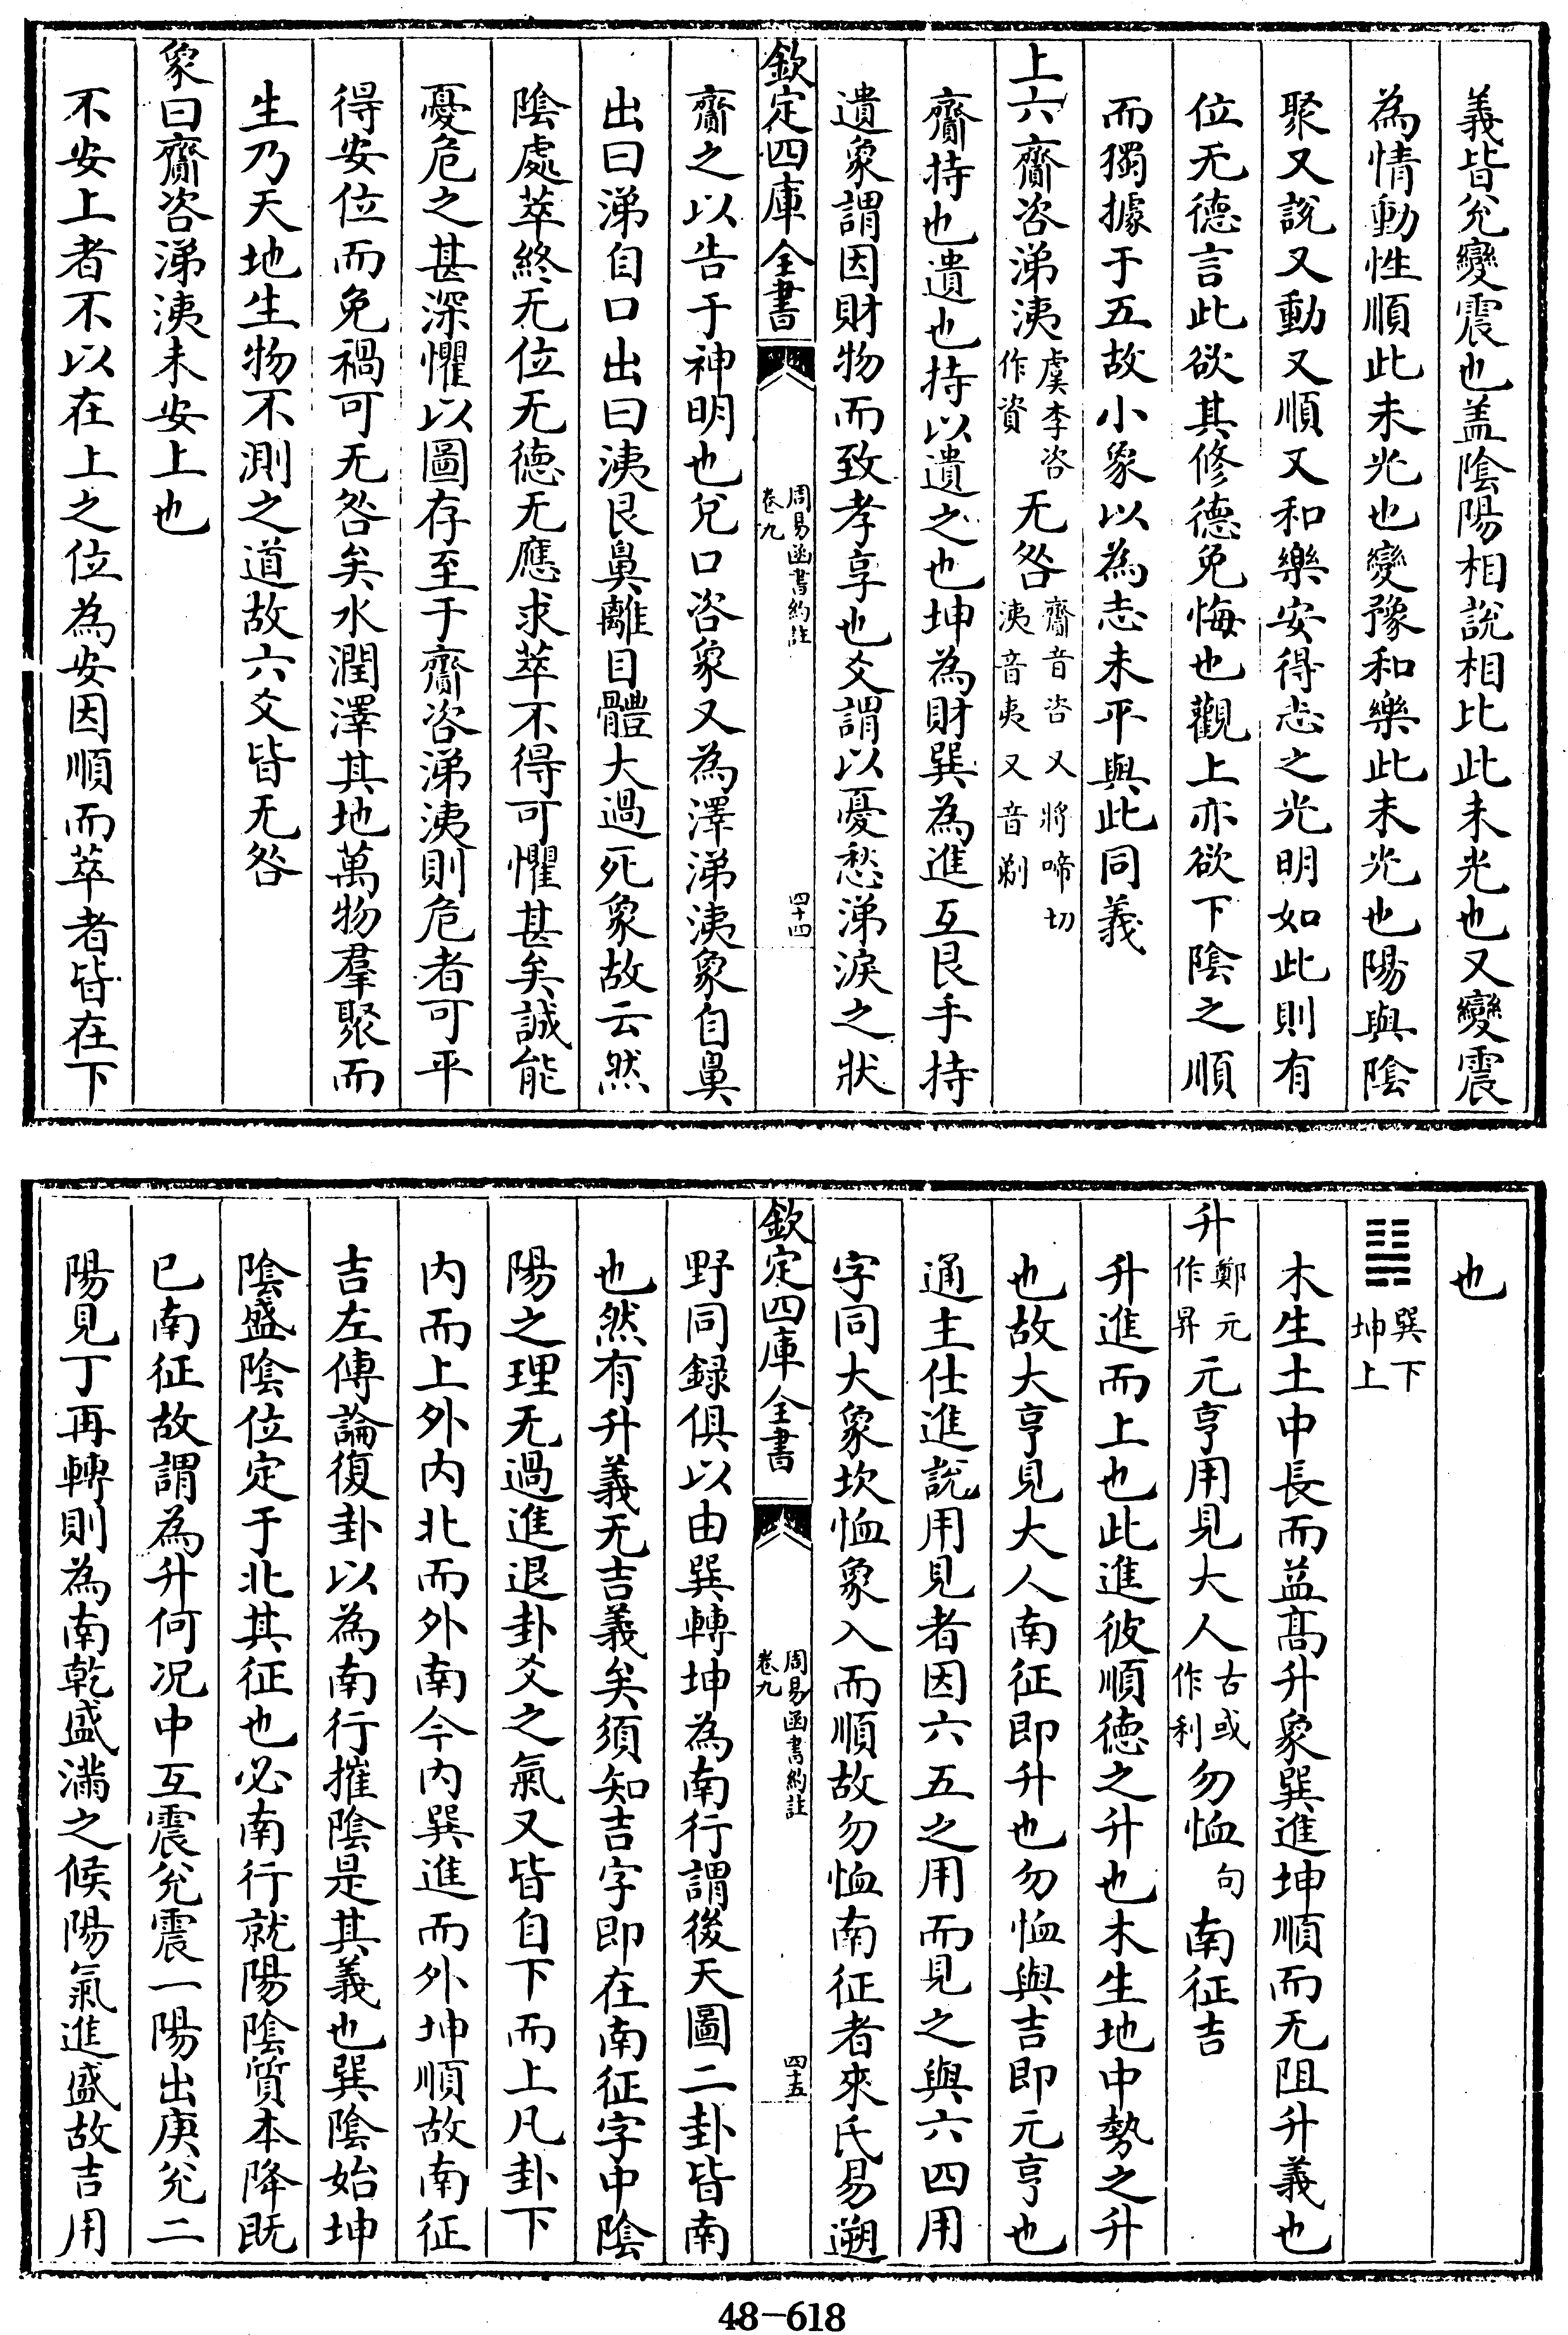 義皆兊變震也盖陰陽相説相比此未光也又變震
為情動性順此未光也變豫和樂此未光也陽與陰
聚又説又動又順又和樂安得志之光明如此則有
位无德言此欲其修德免悔也觀上亦欲下陰之順
而獨據于五故小象以為志未平與此同義
上六齎咨涕洟虞李咨作資无咎齎音咨又將啼切洟音夷又音剃
齎持也遺也持以遺之也坤為財巽為進互艮手持
遺象謂因財物而致孝享也爻謂以憂愁涕淚之狀
欽定四庫全書 周易函書約註卷九 四十四
齎之以告于神明也兌口咨象又為澤涕洟象自鼻
出曰涕自口出曰洟艮鼻離目體大過死象故云然
陰處萃終无位无德无應求萃不得可懼甚矣誠能
憂危之甚深懼以圖存至于齎咨涕洟則危者可平
得安位而免禍可无咎矣水潤澤其地萬物羣聚而
生乃天地生物不測之道故六爻皆无咎
象曰齎咨涕洟未安上也
不安上者不以在上之位為安因順而萃者皆在下
也
䷭巽下坤上
木生土中長而益髙升象巽進坤順而无阻升義也
升鄭元作昇元亨用見大人古或作利勿恤句南征吉
升進而上也此進彼順德之升也木生地中勢之升
也故大亨見大人南征即升也勿恤與吉即元亨也
通主仕進説用見者因六五之用而見之與六四用
字同大象坎恤象入而順故勿恤南征者來氏易遡
欽定四庫全書 周易函書約註卷九 四十五
野同録俱以由巽轉坤為南行謂後天圖二卦皆南
也然有升義无吉義矣須知吉字即在南征字中陰
陽之理无過進退卦爻之氣又皆自下而上凡卦下
内而上外内北而外南今内巽進而外坤順故南征
吉左傳論復卦以為南行摧陰是其義也巽陰始坤
陰盛陰位定于北其征也必南行就陽陰質本降旣
已南征故謂為升何况中互震兊震一陽出庚兊二
陽見丁再轉則為南乾盛滿之候陽氣進盛故吉用
48-618